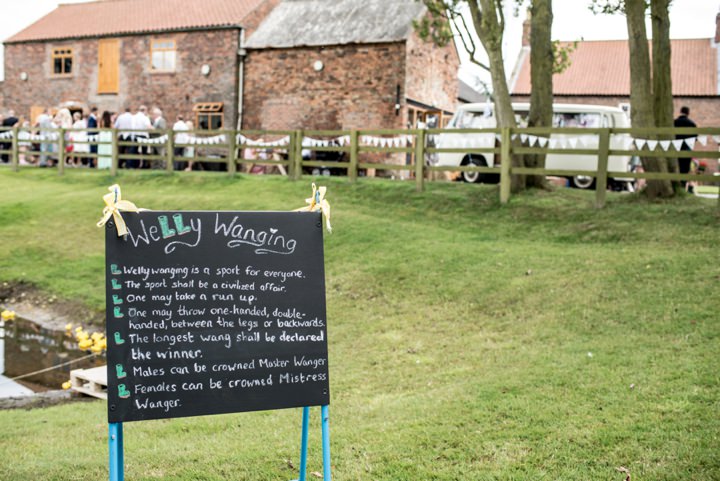 Welly Wanging
Welly wanging is a sport for everyone.
The sport shall be a civilized affair.
One may take a run up.
One may throw one-handed, double-
handed, between the legs or backwards.
The longest wang shall be declared
the winner.
Males can be crowned Master Wanger
Females can be crowned Mistress
Wanger.